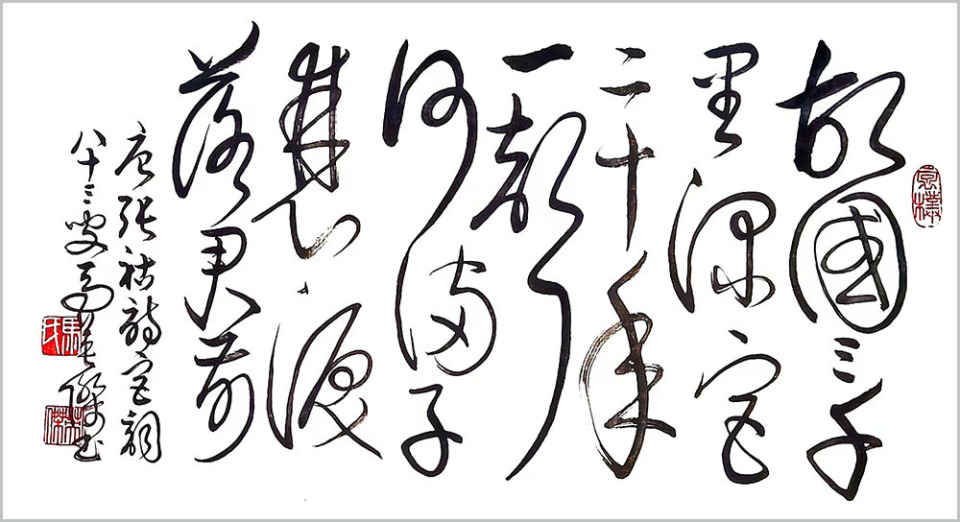 故國三千
里深宮
二十年
一聲
何滿子
雙淚
落君前
唐張祜詩宮詞
八十三叟馬傑书
馬氏